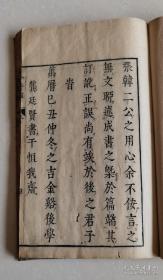 張韓二公之用心余不佞言之
無文聊述成書之槩於篇端其
訂訛正誤尚有竢於後之君子
旹
萬曆己丑仲冬之吉金谿後學
龔廷賢書于恒我齋